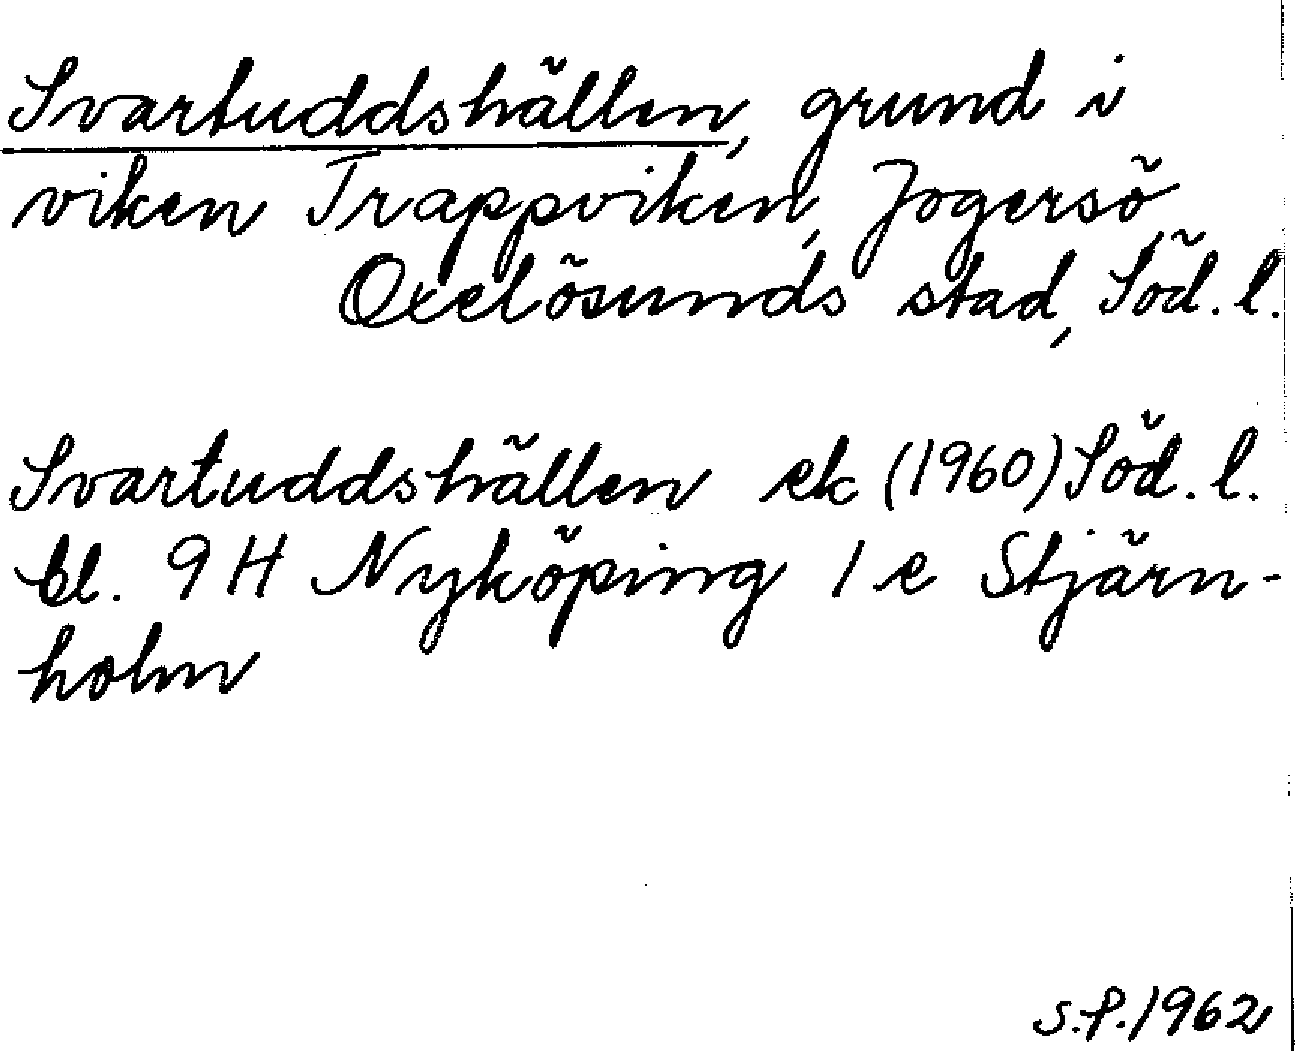 Svartuddshällen, grund i
viken Trappviken, Jogersö,
Oxelösunds stad, Söd. l.
Svartuddshällen ek (1960) Söd. l.
bl. 9 H Nyköping 1 e Stjärn-
holm
S.P. 1962